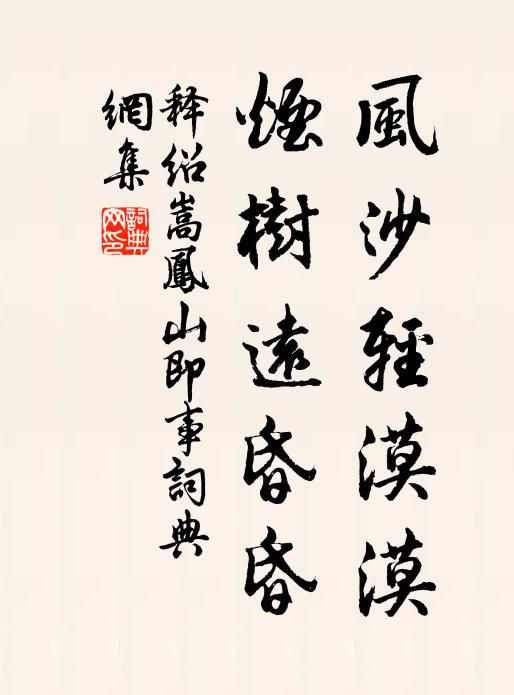 風沙輕漠漠
煙樹遠昏昏
释绍嵩鳳山即事詞典
網集
詞典网印